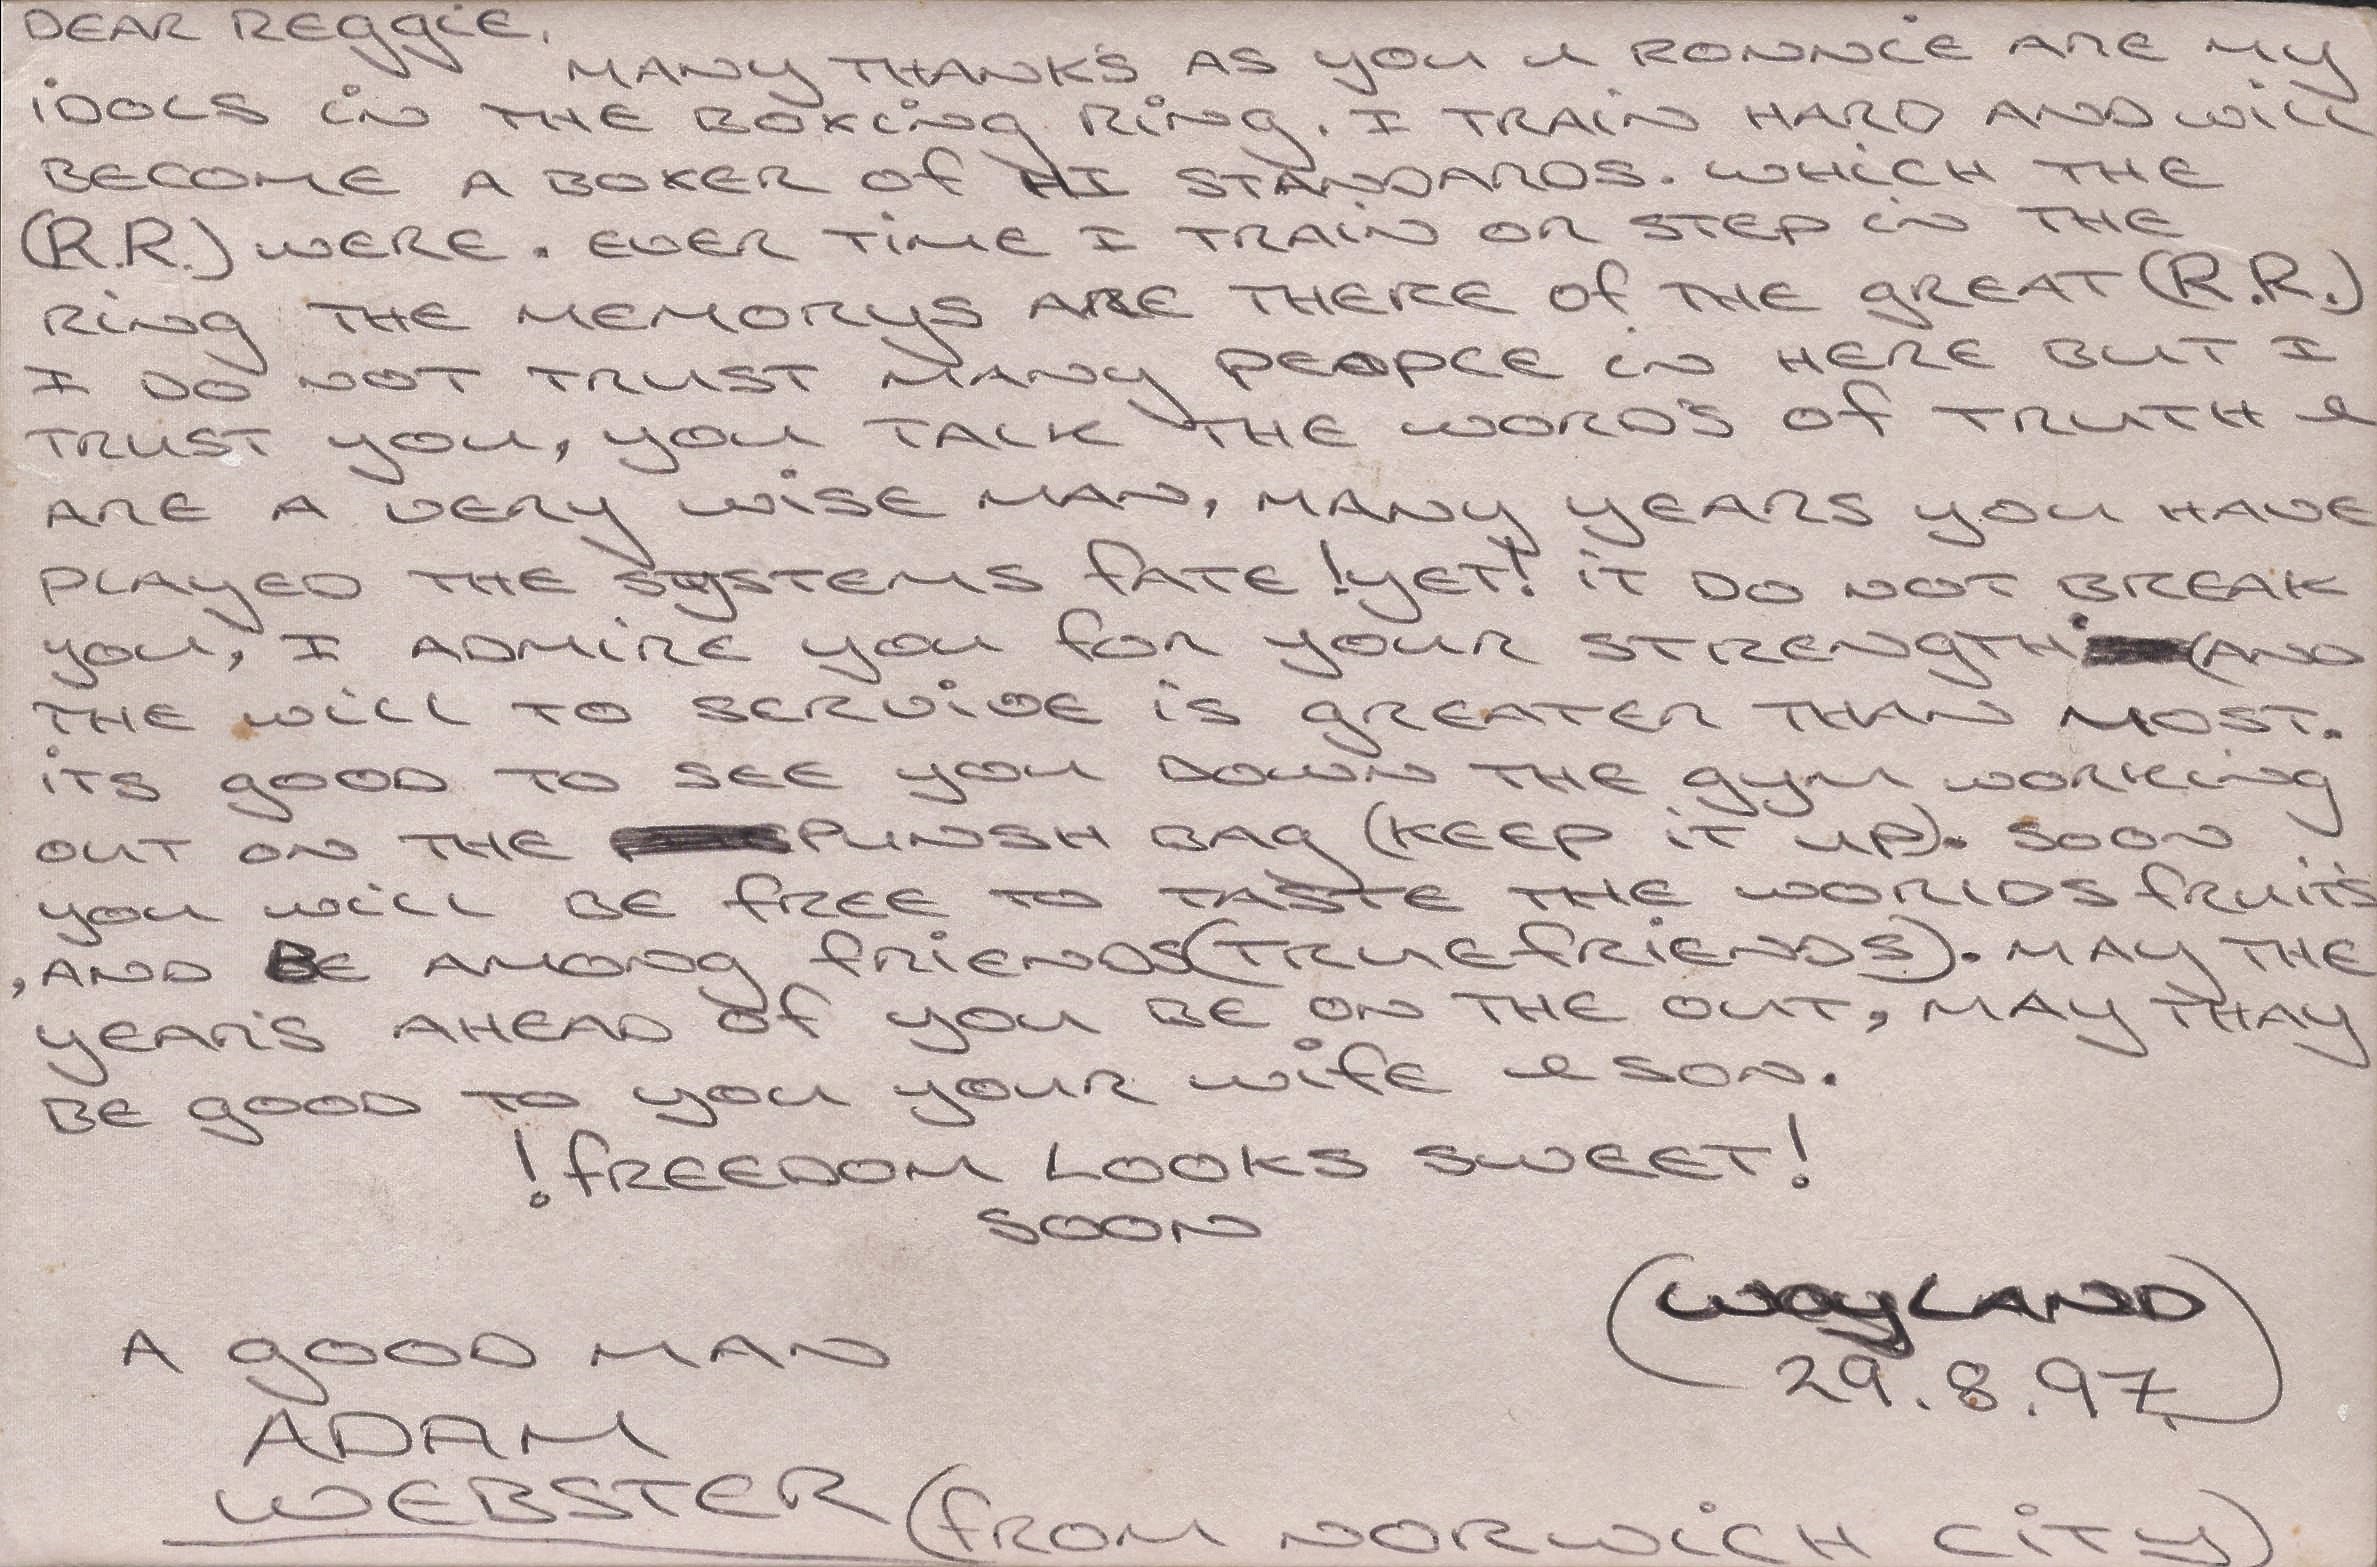 DEAR REGGIE,
MANY THANKS AS YOU & RONNIE ARE MY
IDOLS IN THE BOXING RING. I TRAIN HARD AND WILL
BECOME A BOXER OF HI STANDARDS. WHICH THE
(R.R.) WERE. EVER TIME I TRAIN OR STEP IN THE
RING THE MEMORYS ARE THERE OF THE GREAT (R.R.)
I DO NOT TRUST MANY PEOPLE IN HERE BUT I
TRUST YOU, YOU TALK THE WORDS OF TRUTH &
ARE A VERY WISE MAN, MANY YEARS YOU HAVE
PLAYED THE SYSTEMS FATE! YET! IT DO NOT BREAK
YOU, I ADMIRE YOU FOR YOUR STRENGTH (AND
THE WILL TO SERVIVE IS GREATER THAN MOST.
ITS GOOD TO SEE YOU DOWN THE GYM WORKING
OUT ON THE PUNSH BAG (KEEP IT UP). SOON
YOU WILL BE FREE TO TASTE THE WORLDS FRUITS
, AND BE AMONG FRIENDS (TRUE FRIENDS). MAY THE
YEARS AHEAD OF YOU BE ON THE OUT, MAY THAY
BE GOOD TO YOU YOUR WIFE & SON.
! FREEDOM LOOKS SWEET!
SOON
(WAYLAND
29.8.97)
A GOOD MAN
ADAM
WEBSTER (FROM NORWICH CITY)